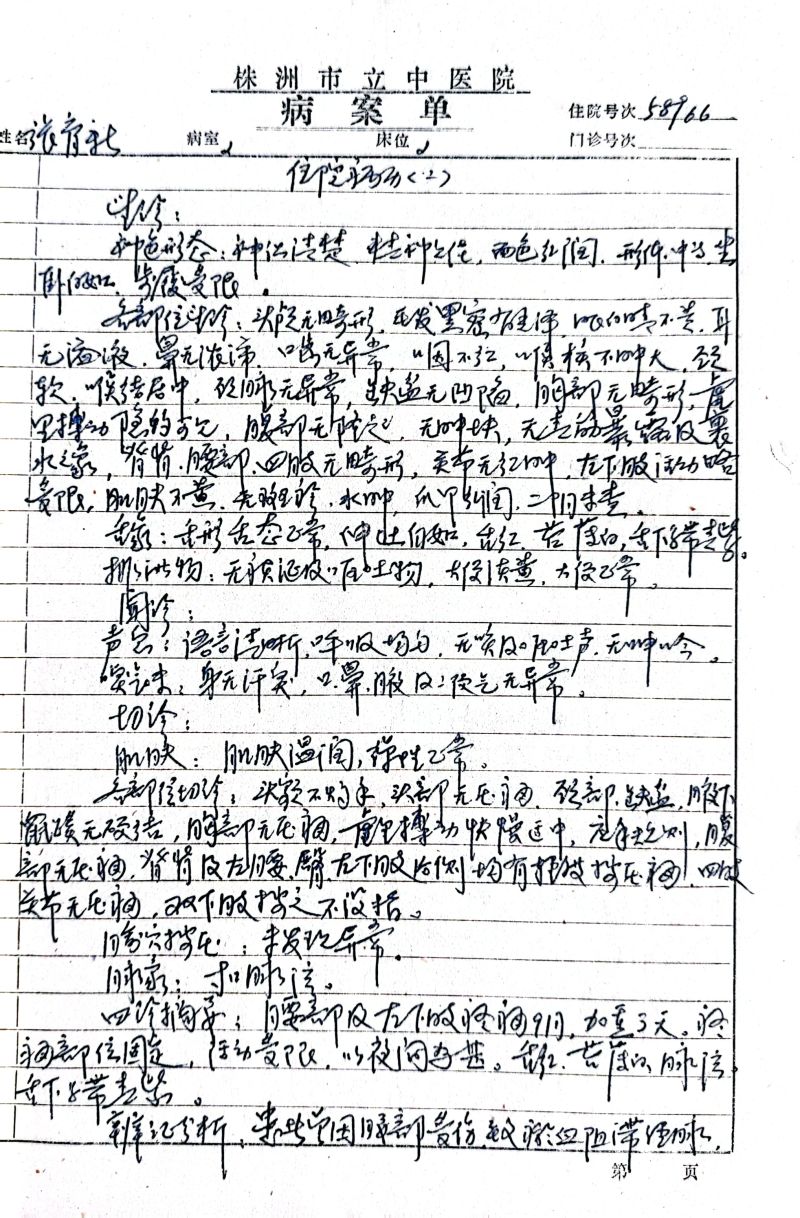 株洲市立中医院
病案单
住院号次 58966
姓名 张育 病室 2 床位 2 门诊号次
住院病历(2)
望诊：
神色形态：神识清楚，精神尚佳，面色红润，形体中等，坐
卧自如，步履受限。
各部位望诊：头颅无畸形，毛发黑密有光泽，白睛不黄，耳
无溢液，鼻无浓涕，口唇无异常，咽不红，喉核不肿大，颈
软，喉结居中，颈脉无异常，缺盆无凹陷，胸部无畸形，虚
里搏动隐约可见，腹部无隆起，无肿块，无青筋暴露及裹
水之象，脊背、腰部、四肢无畸形，关节无红肿，左下肢活动略
受限，肌肤不黄，无斑疹、水肿，爪甲红润，二阴未查。
舌象：舌形舌态正常，伸吐自如，舌红，苔薄白，舌下络带青紫。
排泄物：无痰涎及呕吐物，小便淡黄，大便正常。
闻诊：
声息：语言清晰，呼吸均匀，无咳及呕吐声，无呻吟。
嗅气味：身无汗臭，口、鼻、腋及二便气无异常。
切诊：
肌肤：肌肤温润，弹性正常。
各部位切诊：头额不灼手，头部无压痛，颈部、缺盆、腋下、
鼠蹊无硬结，胸部无压痛，虚里搏动快慢适中，应手规则，腹
部无压痛，脊背及左腰、臀、左下肢后侧均有拒按按压痛，四肢
关节无压痛，双下肢按之不没指。
腧穴按压：未发现异常。
脉象：寸口脉弦。
四诊摘要：腰部及左下肢疼痛9月，加重3天。疼
痛部位固定，活动受限，以夜间为甚。舌红，苔薄白，脉弦，
舌下络带青紫。
辨证分析：患者曾因腰部受伤，致瘀血阻滞经脉，
第 页